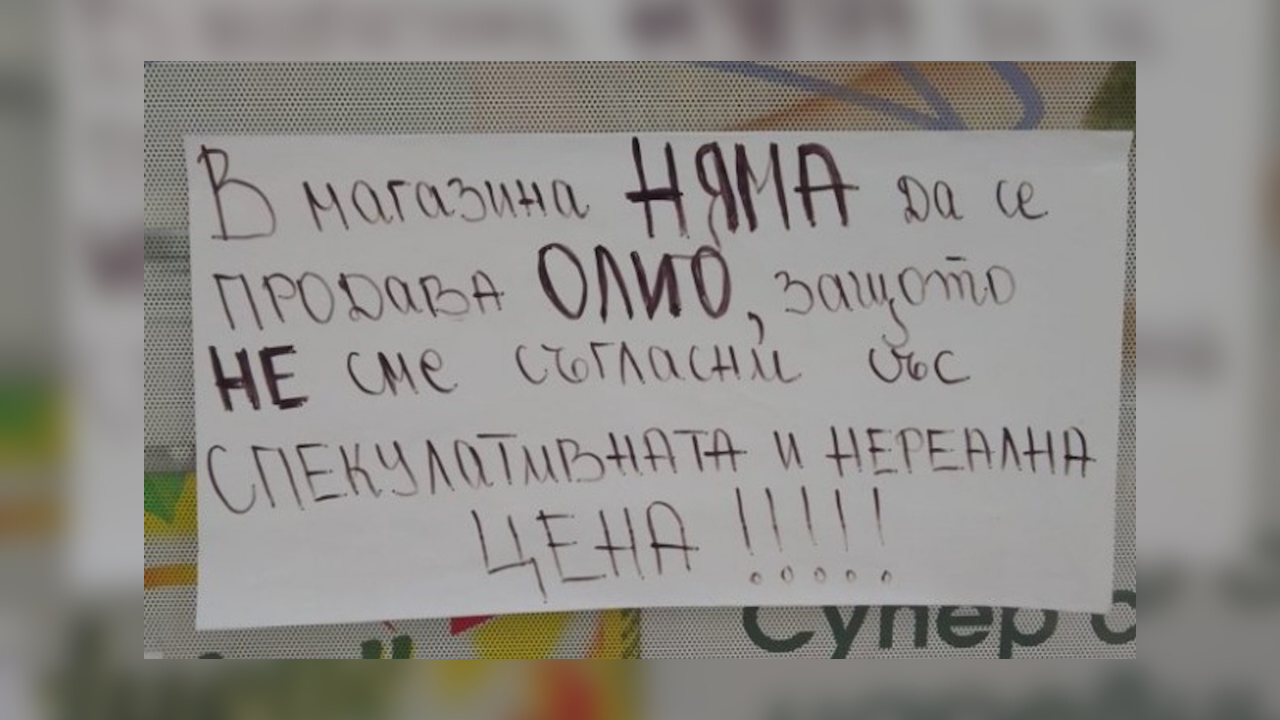 В магазина НЯМА да се
ПРОДАВА ОЛИО, защото
НЕ сме съгласни със
СПЕКУЛАТИВНАТА И НЕРЕАЛНА
ЦЕНА !!!!!
Супер